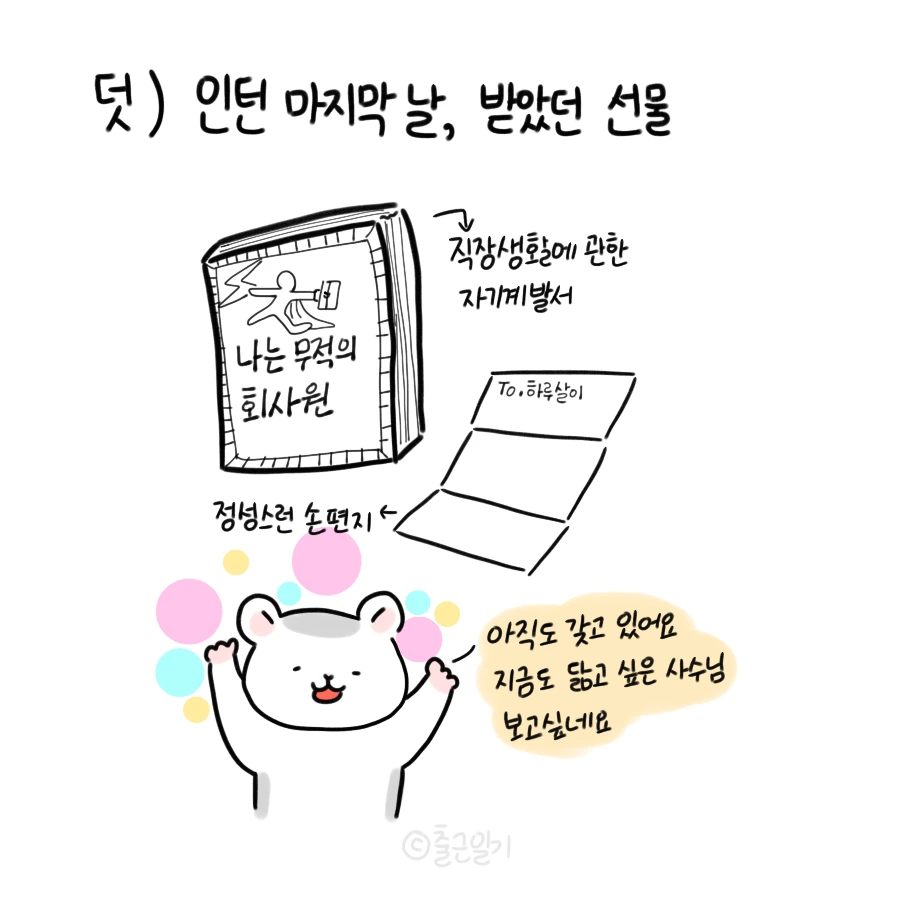 덧) 인턴 마지막 날, 받았던 선물
직장생활에 관한
자기계발서
나는 무적의
회사원
To. 하루살이
정성스런 손편지
아직도 갖고 있어요
지금도 닮고 싶은 사수님
보고싶네요
©출근일기